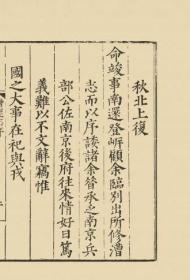 秋北上復
命竣事南還登㟁顧余臨別出所修漕
志而以序諉諸余承乏南京兵
部公佐南京後府往來情好日篤
義難以不文辭竊惟
國之大事在祀與戎